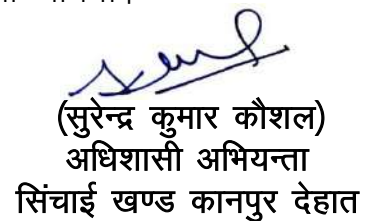 (सुरेन्द्र कुमार कौशल)
अधिशासी अभियन्ता
सिंचाई खण्ड कानपुर देहात